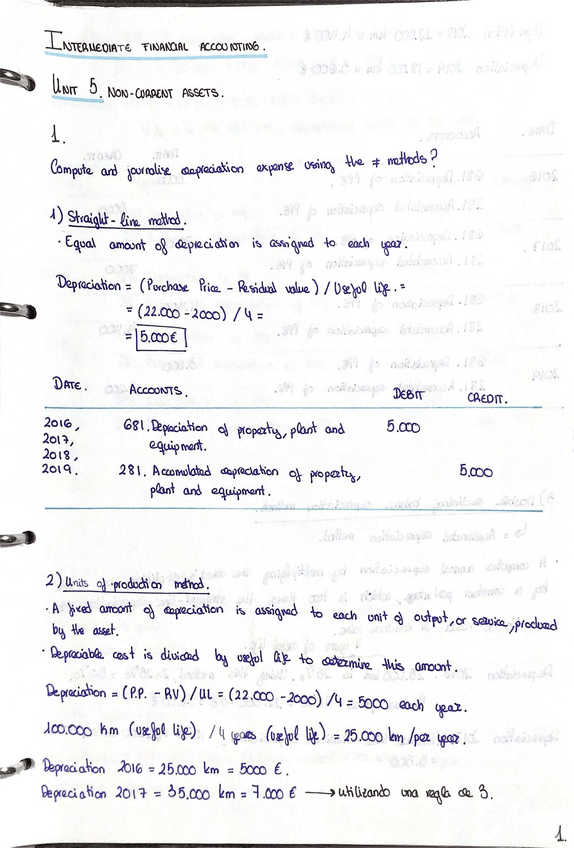 INTERMEDIATE FINANCIAL ACCOUNTING.
UNIT 5. NON-CURRENT ASSETS.
1.
Compute and journalise depreciation expense using the ≠ methods?
1) Straight-line method.
· Equal amount of depreciation is assigned to each year.
Depreciation = (Purchase Price - Residual value) / Useful life. =
= (22.000 - 2000) / 4 =
= 5.000 €
DATE. ACCOUNTS. DEBIT CREDIT.
2016, 681. Depreciation of property, plant and 5.000
2017, equipment.
2018,
2019. 281. Accomulated depreciation of property, 5.000
plant and equipment.
2) Units of production method.
· A fixed amount of depreciation is assigned to each unit of output, or service, produced
by the asset.
· Depreciable cost is divided by useful life to determine this amount.
Depreciation = (P.P. - RV) / UL = (22.000 - 2000) / 4 = 5000 each year.
100.000 Km (useful life) / 4 years (useful life) = 25.000 km /per year.
Depreciation 2016 = 25.000 km = 5000 €.
Depreciation 2017 = 35.000 km = 7.000 € → utilizando una regla de 3.
1.